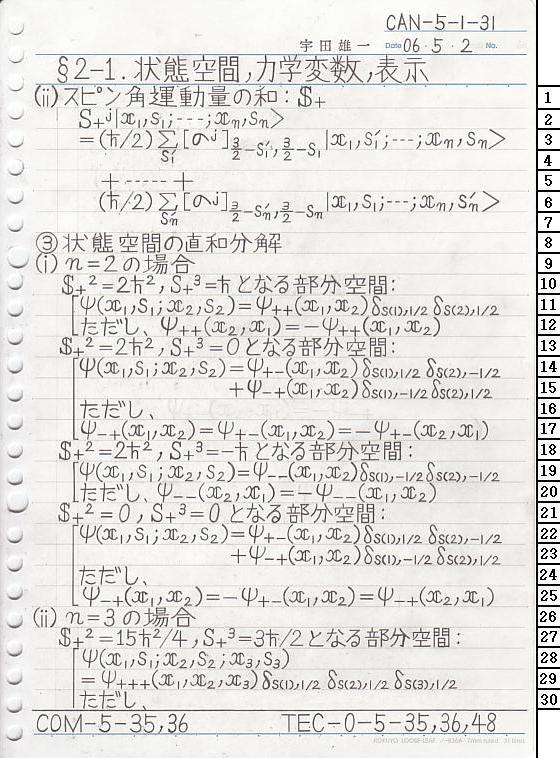 CAN-5-1-31
宇田雄一 Date 06・5・2 No.
§2-1. 状態空間,力学変数,表示
(ii) スピン角運動量の和: 𝕊₊
S₊ʲ|x₁,s₁;---;xₙ,sₙ>
=(ħ/2)Σ_{s₁′}[σʲ]_{3/2-s₁′,3/2-s₁}|x₁,s₁′;---;xₙ,sₙ>
+ ----- +
(ħ/2)Σ_{sₙ′}[σʲ]_{3/2-sₙ′,3/2-sₙ}|x₁,s₁;---;xₙ,sₙ′>
③ 状態空間の直和分解
(i) n=2の場合
𝕊₊²=2ħ², S₊³=ħとなる部分空間:
[ψ(x₁,s₁;x₂,s₂)=ψ₊₊(x₁,x₂)δ_{s(1),1/2} δ_{s(2),1/2}
ただし、ψ₊₊(x₂,x₁)=-ψ₊₊(x₁,x₂)
𝕊₊²=2ħ², S₊³=0となる部分空間:
[ψ(x₁,s₁;x₂,s₂)=ψ₊₋(x₁,x₂)δ_{s(1),1/2} δ_{s(2),-1/2}
+ψ₋₊(x₁,x₂)δ_{s(1),-1/2} δ_{s(2),1/2}
ただし、
ψ₋₊(x₁,x₂)=ψ₊₋(x₁,x₂)=-ψ₊₋(x₂,x₁)
𝕊₊²=2ħ², S₊³=-ħとなる部分空間:
[ψ(x₁,s₁;x₂,s₂)=ψ₋₋(x₁,x₂)δ_{s(1),-1/2} δ_{s(2),-1/2}
ただし、ψ₋₋(x₂,x₁)=-ψ₋₋(x₁,x₂)
𝕊₊²=0, S₊³=0となる部分空間:
[ψ(x₁,s₁;x₂,s₂)=ψ₊₋(x₁,x₂)δ_{s(1),1/2} δ_{s(2),-1/2}
+ψ₋₊(x₁,x₂)δ_{s(1),-1/2} δ_{s(2),1/2}
ただし、
ψ₋₊(x₁,x₂)=-ψ₊₋(x₁,x₂)=ψ₋₊(x₂,x₁)
(ii) n=3の場合
𝕊₊²=15ħ²/4, S₊³=3ħ/2となる部分空間:
[ψ(x₁,s₁;x₂,s₂;x₃,s₃)
=ψ₊₊₊(x₁,x₂,x₃)δ_{s(1),1/2} δ_{s(2),1/2} δ_{s(3),1/2}
ただし、
COM-5-35,36 TEC-0-5-35,36,48
1
2
3
4
5
6
7
8
9
10
11
12
13
14
15
16
17
18
19
20
21
22
23
24
25
26
27
28
29
30